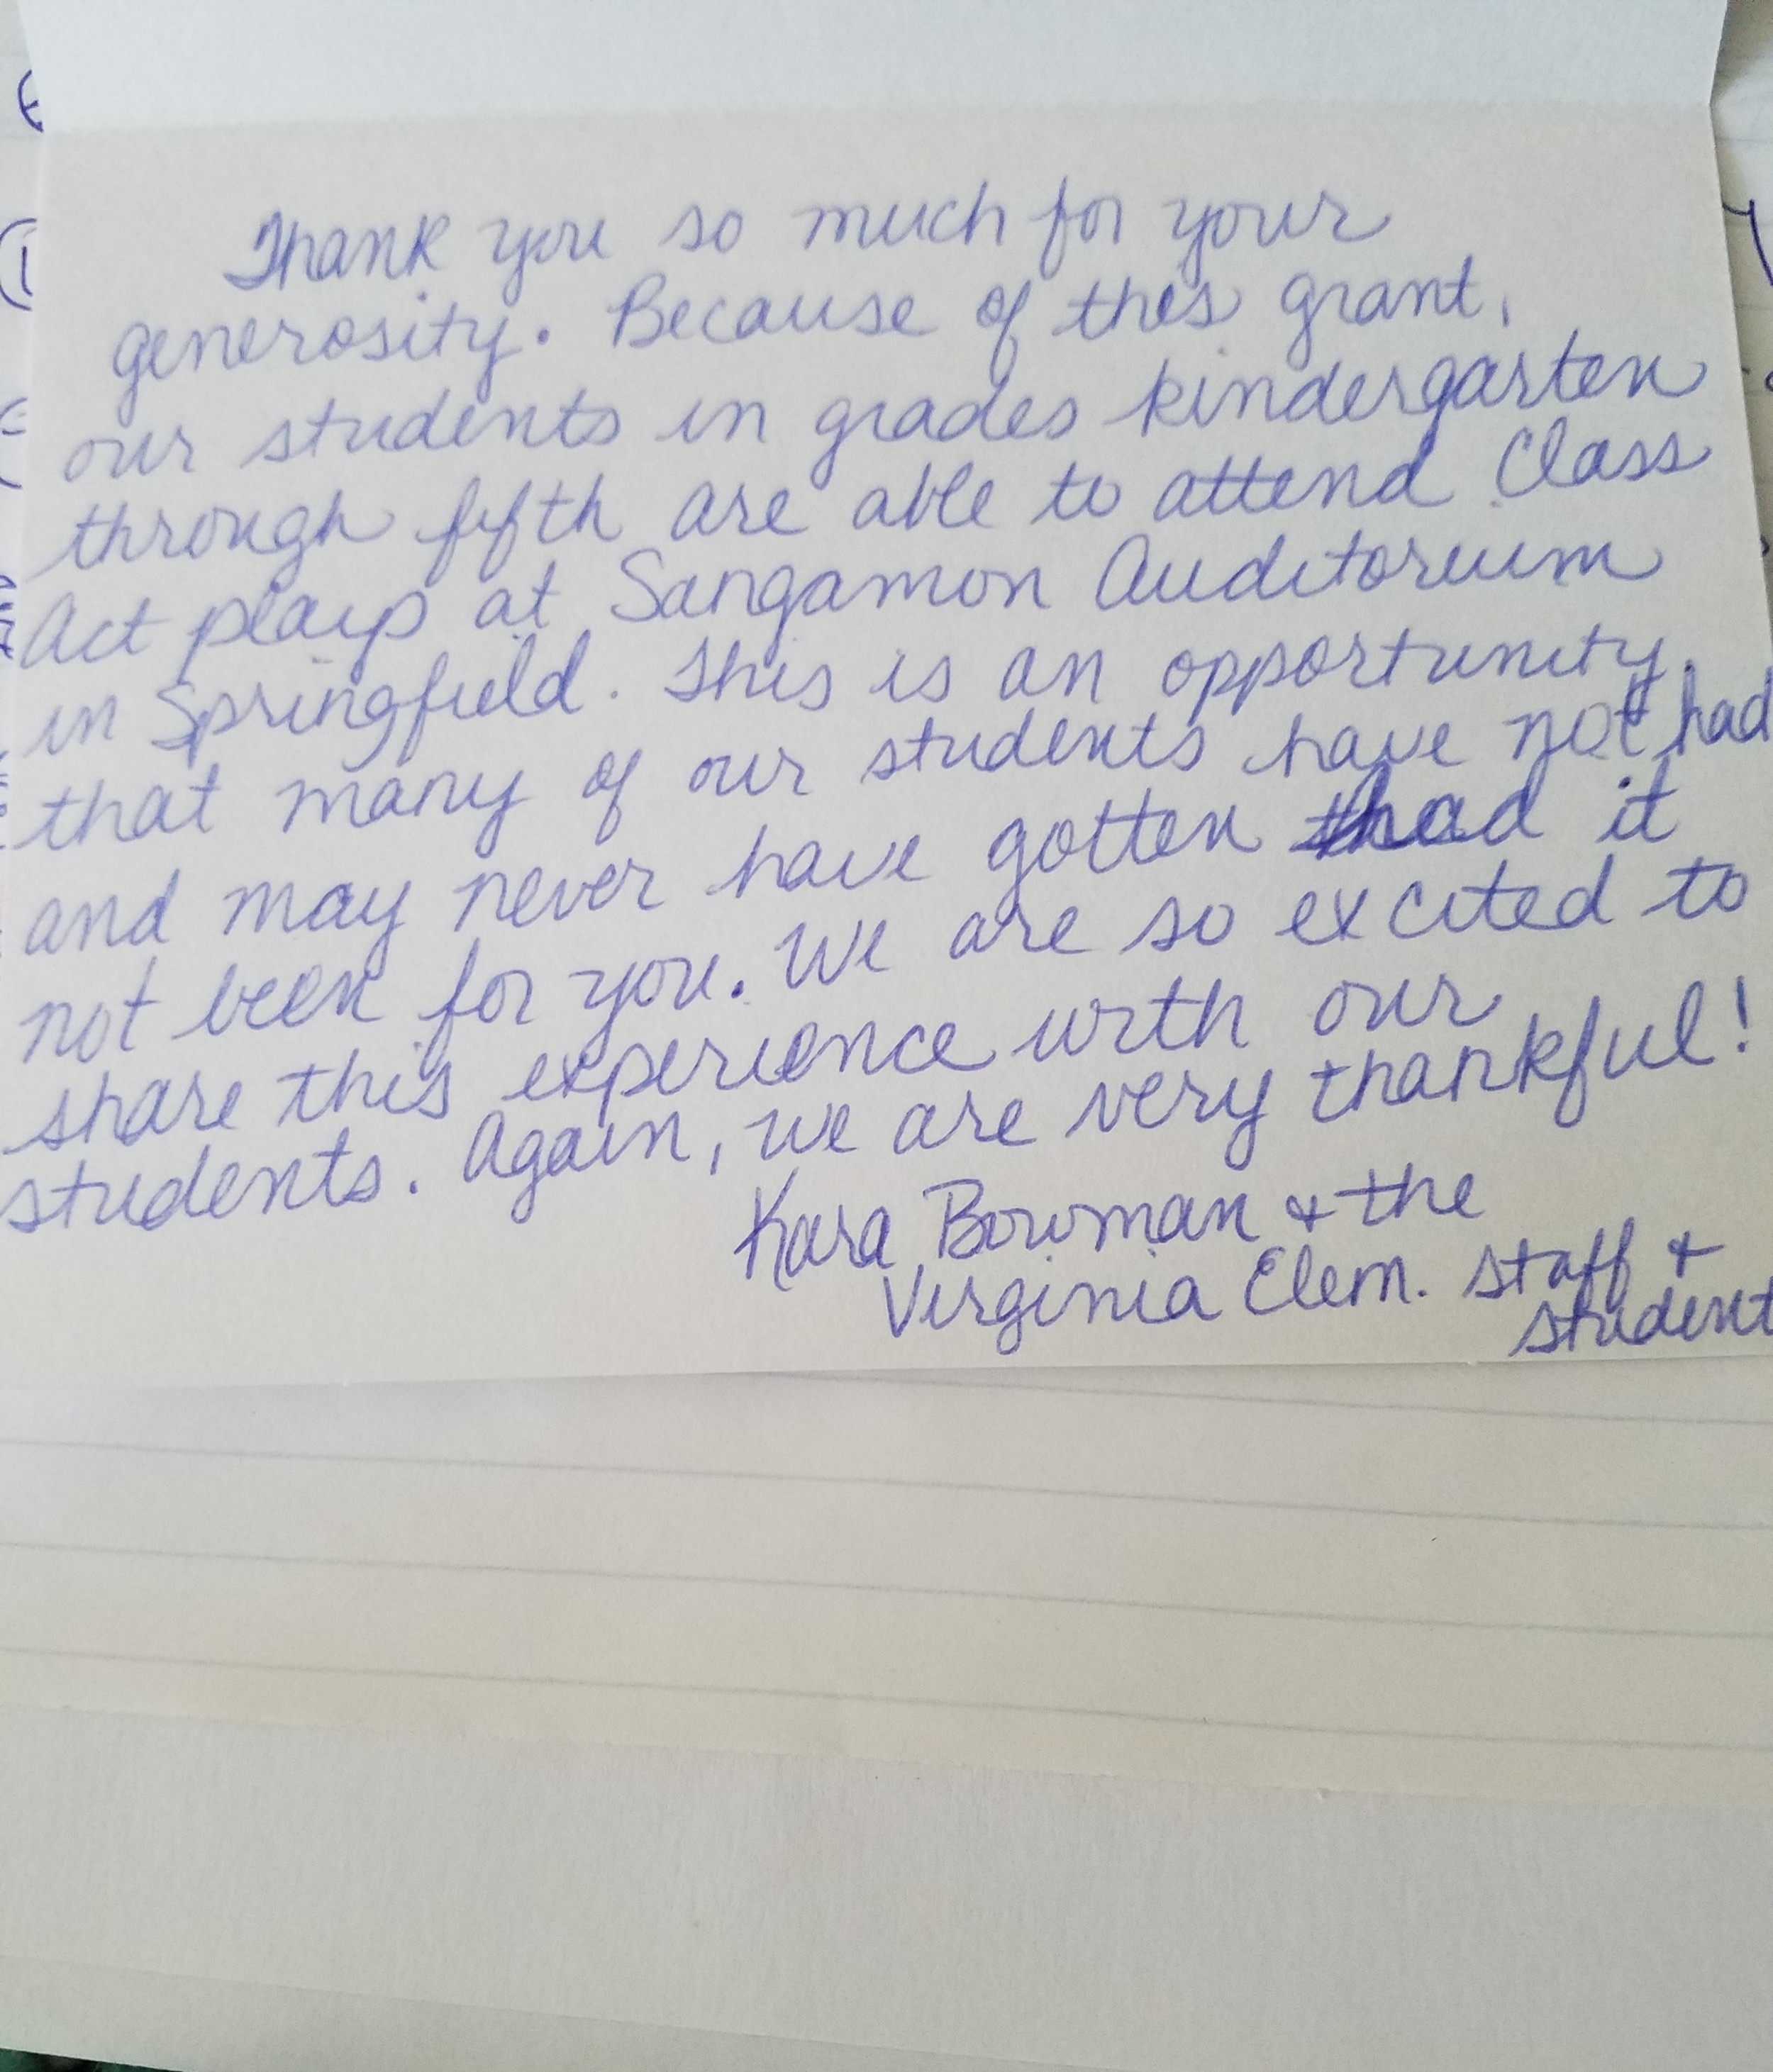 Thank you so much for your
generosity. Because of this grant,
our students in grades kindergarten
through fifth are able to attend Class
Act plays at Sangamon Auditorium
in Springfield. This is an opportunity
that many of our students have not had
and may never have gotten had it
not been for you. We are so excited to
share this experience with our
students. Again, we are very thankful!
Kara Bowman & the
Virginia Elem. staff &
student